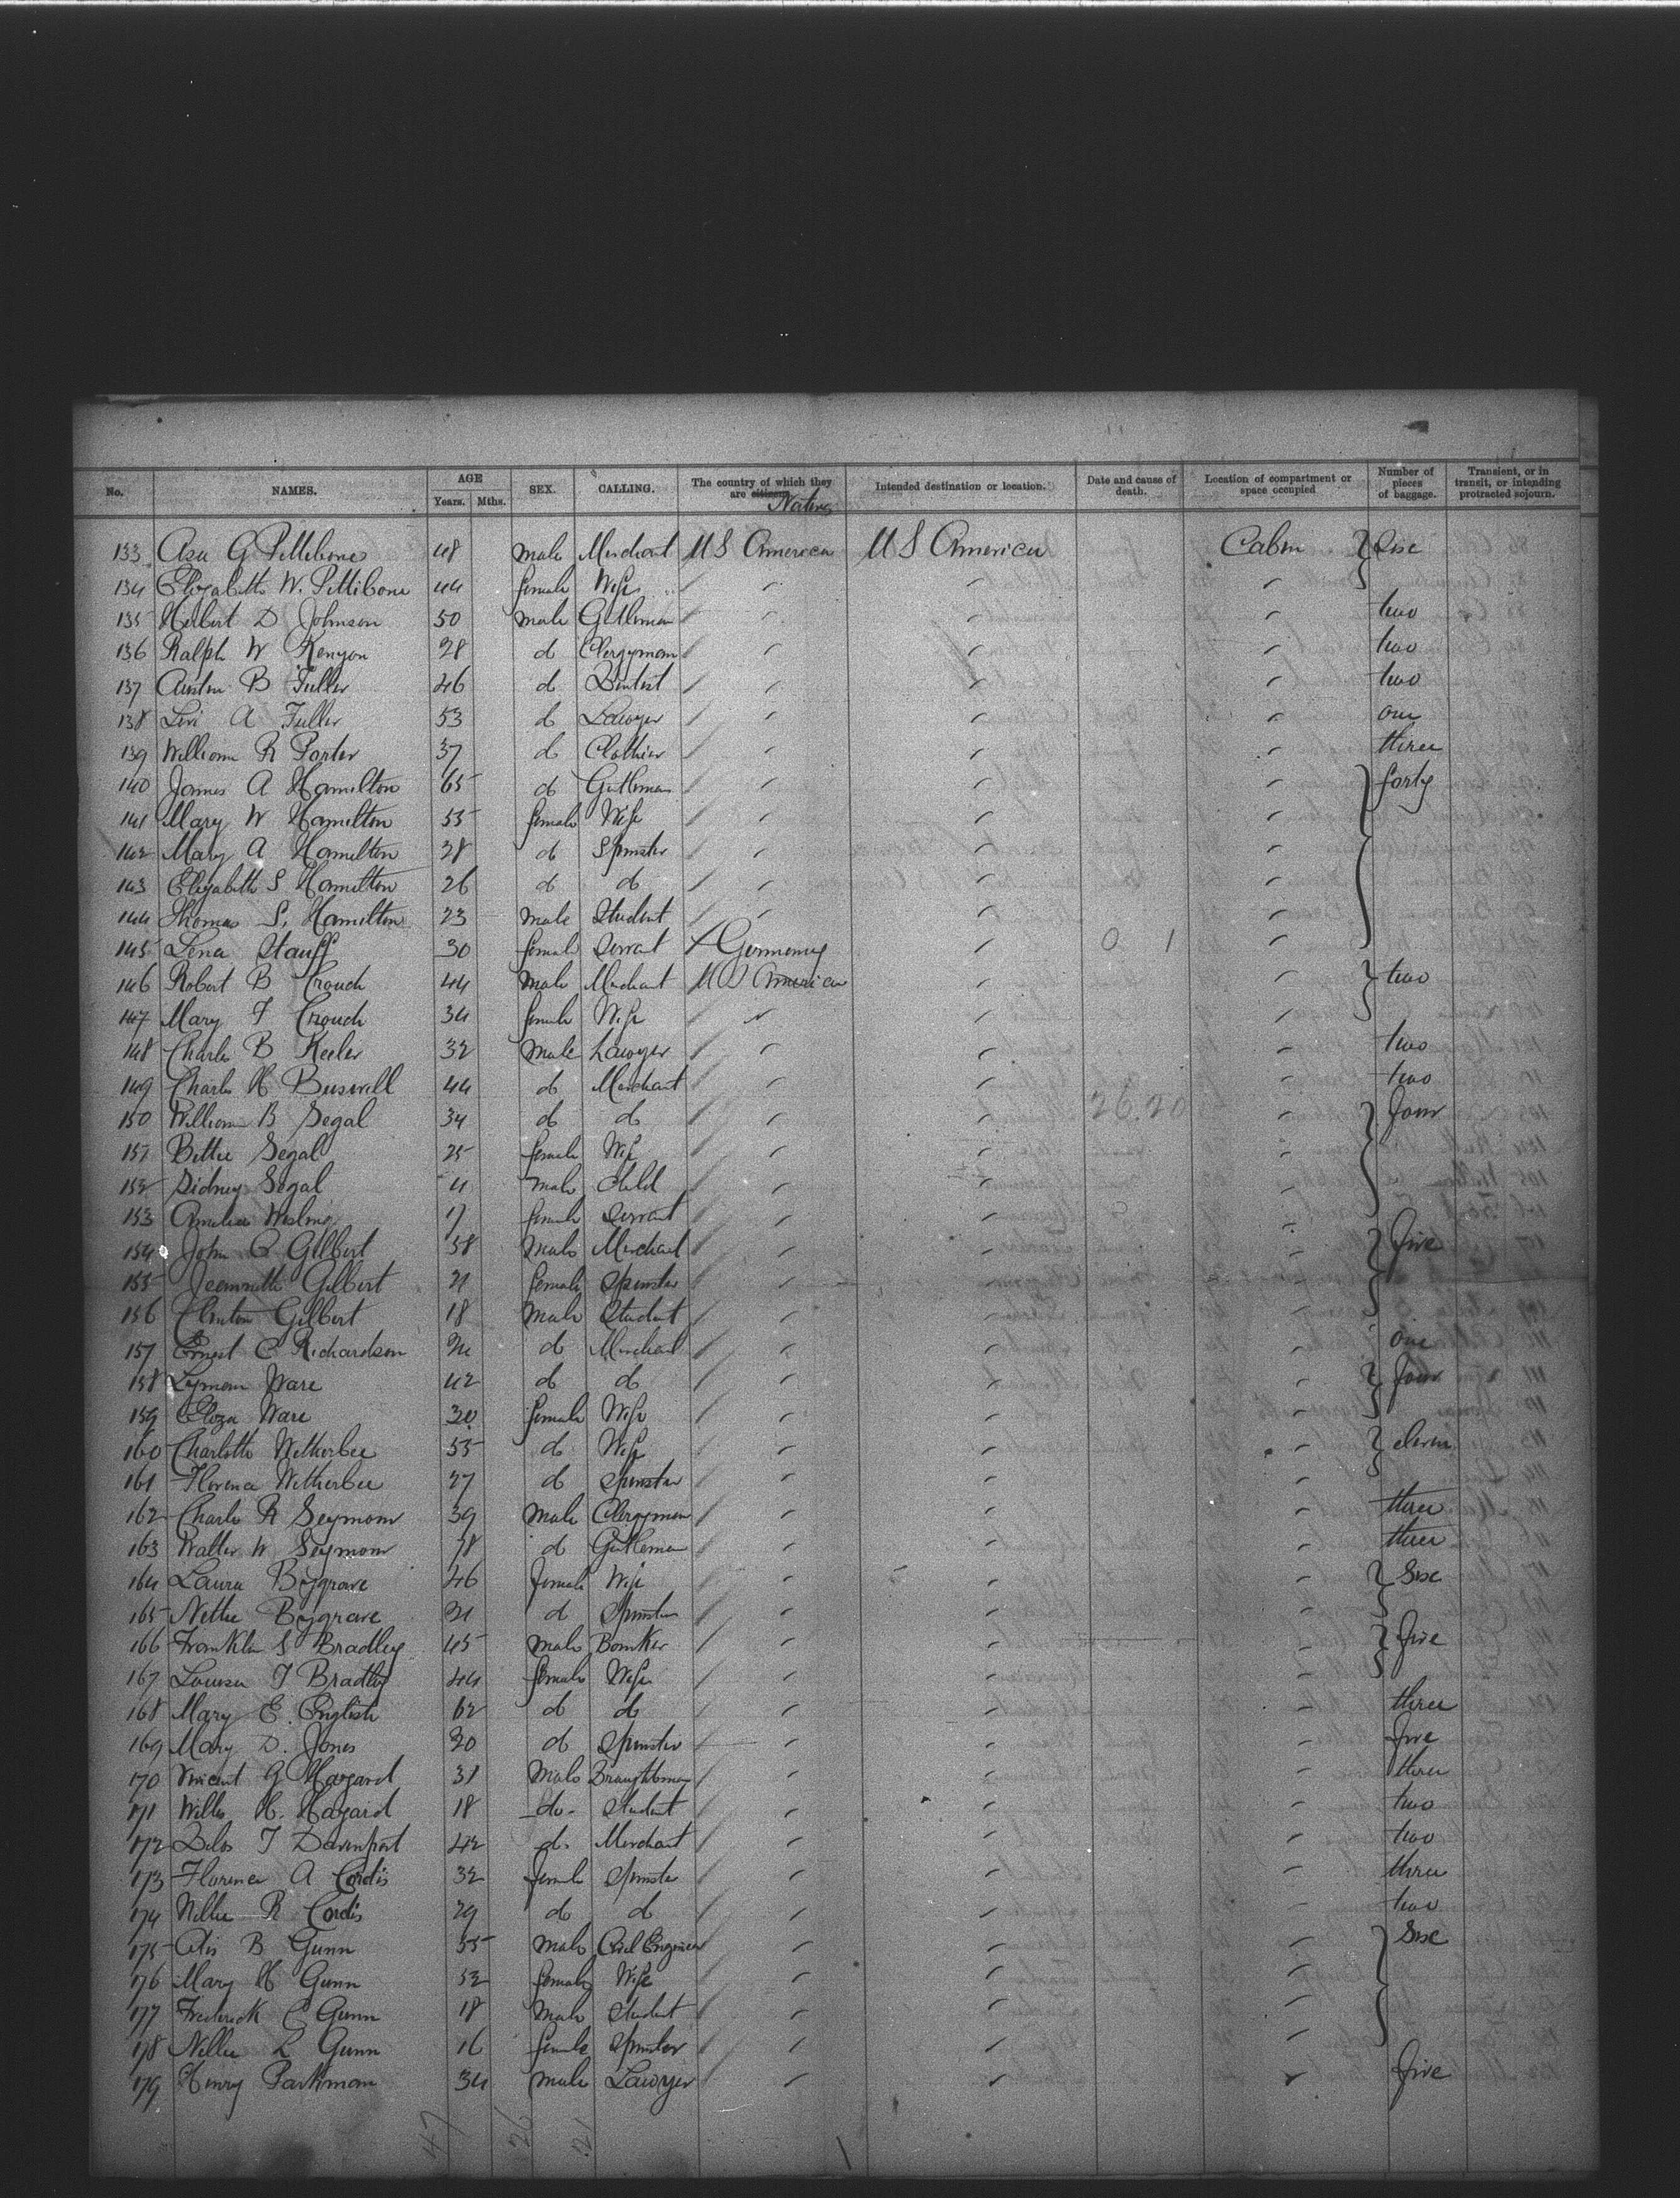 No. NAMES. AGE Years. Mths. SEX. CALLING. The country of which they are citizens Natives Intended destination or location. Date and cause of death. Location of compartment or space occupied Number of pieces of baggage. Transient, or in transit, or intending protracted sojourn.
133 Asa G Pettibone 48 male Merchant U S America U S America Cabin Six
134 Elizabeth W. Pettibone 44 female Wife
135 Herbert D Johnson 50 male Gentleman two
136 Ralph W Kenyon 28 do Clergyman two
137 Austin B Fuller 46 do Dentist two
138 Levi A Fuller 53 do Lawyer one
139 William R Porter 37 do Clothier three
140 James A Hamilton 65 do Gentleman forty
141 Mary W Hamilton 55 female Wife
142 Mary A Hamilton 28 do Spinster
143 Elizabeth S Hamilton 26 do do
144 Thomas S. Hamilton 23 male Student
145 Lena Stauff 30 female Servant Germany 0 1
146 Robert B Crouch 44 male Merchant U S America two
147 Mary F Crouch 34 female Wife
148 Charles B Keeler 32 male Lawyer two
149 Charles H Buswell 44 do Merchant two
150 William B Segal 34 do do 26.20 four
151 Bettie Segal 25 female Wife
152 Sidney Segal 4 male Child
153 Amelia 17 female Servant
154 John Gilbert 58 male Merchant five
155 Jeannette Gilbert 21 female Spinster
156 Clinton Gilbert 18 male Student
157 Ernest C Richardson do Merchant one
158 Lyman Ware 42 do do four
159 Eliza Ware 30 female Wife
160 Charlotte Witherbee 55 do Wife eleven
161 Florence Witherbee 27 do Spinster
162 Charles R Seymour 39 male Clergyman three
163 Walter W Seymour 78 do Gentleman three
164 Laura Bygrave 46 female Wife Six
165 Nettie Bygrave 21 do Spinster
166 Franklin S Bradley 45 male Banker five
167 Louisa F Bradley 44 female Wife
168 Mary E. English 62 do do three
169 Mary D. Jones 30 do Spinster five
170 Vincent G Hazard 31 male Draughtsman three
171 Willis H. Hazard 18 do Student two
172 Delos T Davenport 42 do Merchant two
173 Florence A Cordis 32 female Spinster three
174 Nellie R Cordis 29 do do two
175 Otis B Gunn 55 male Civil Engineer Six
176 Mary H Gunn 52 female Wife
177 Frederick C Gunn 18 male Student
178 Nellie L Gunn 16 female Spinster
179 Henry Parkman 34 male Lawyer five
47 26 21